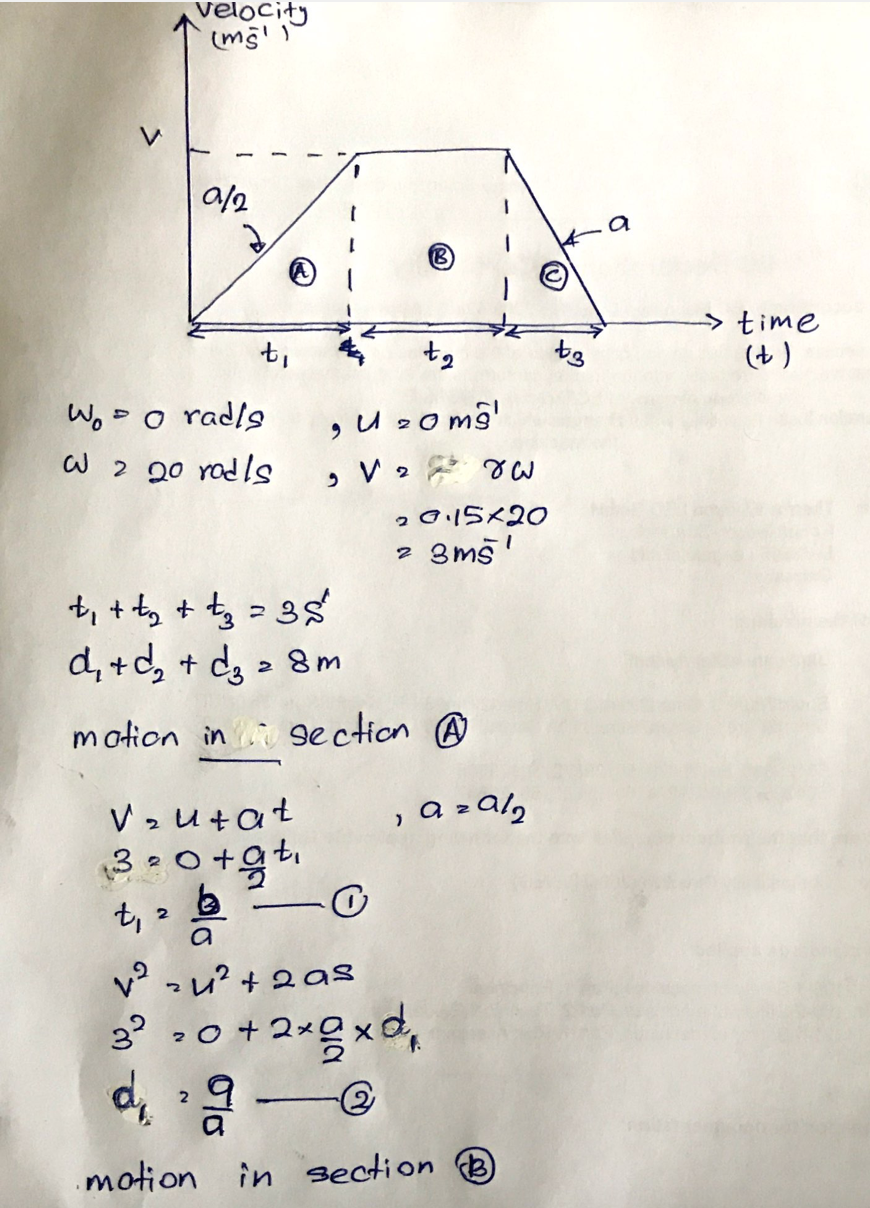 velocity
(ms⁻¹)
V
a/2
a
Ⓐ
Ⓑ
Ⓒ
time
(t)
t₁
t₂
t₃
ω₀ = 0 rad/s , u = 0 ms⁻¹
ω = 20 rad/s , V = rω
= 0.15×20
= 3ms⁻¹
t₁ + t₂ + t₃ = 3s
d₁ + d₂ + d₃ = 8m
motion in section Ⓐ
V = u + at , a = a/2
3 = 0 + a/2 t₁
t₁ = 6/a —— ①
v² = u² + 2as
3² = 0 + 2 × a/2 × d₁
d₁ = 9/a —— ②
motion in section Ⓑ